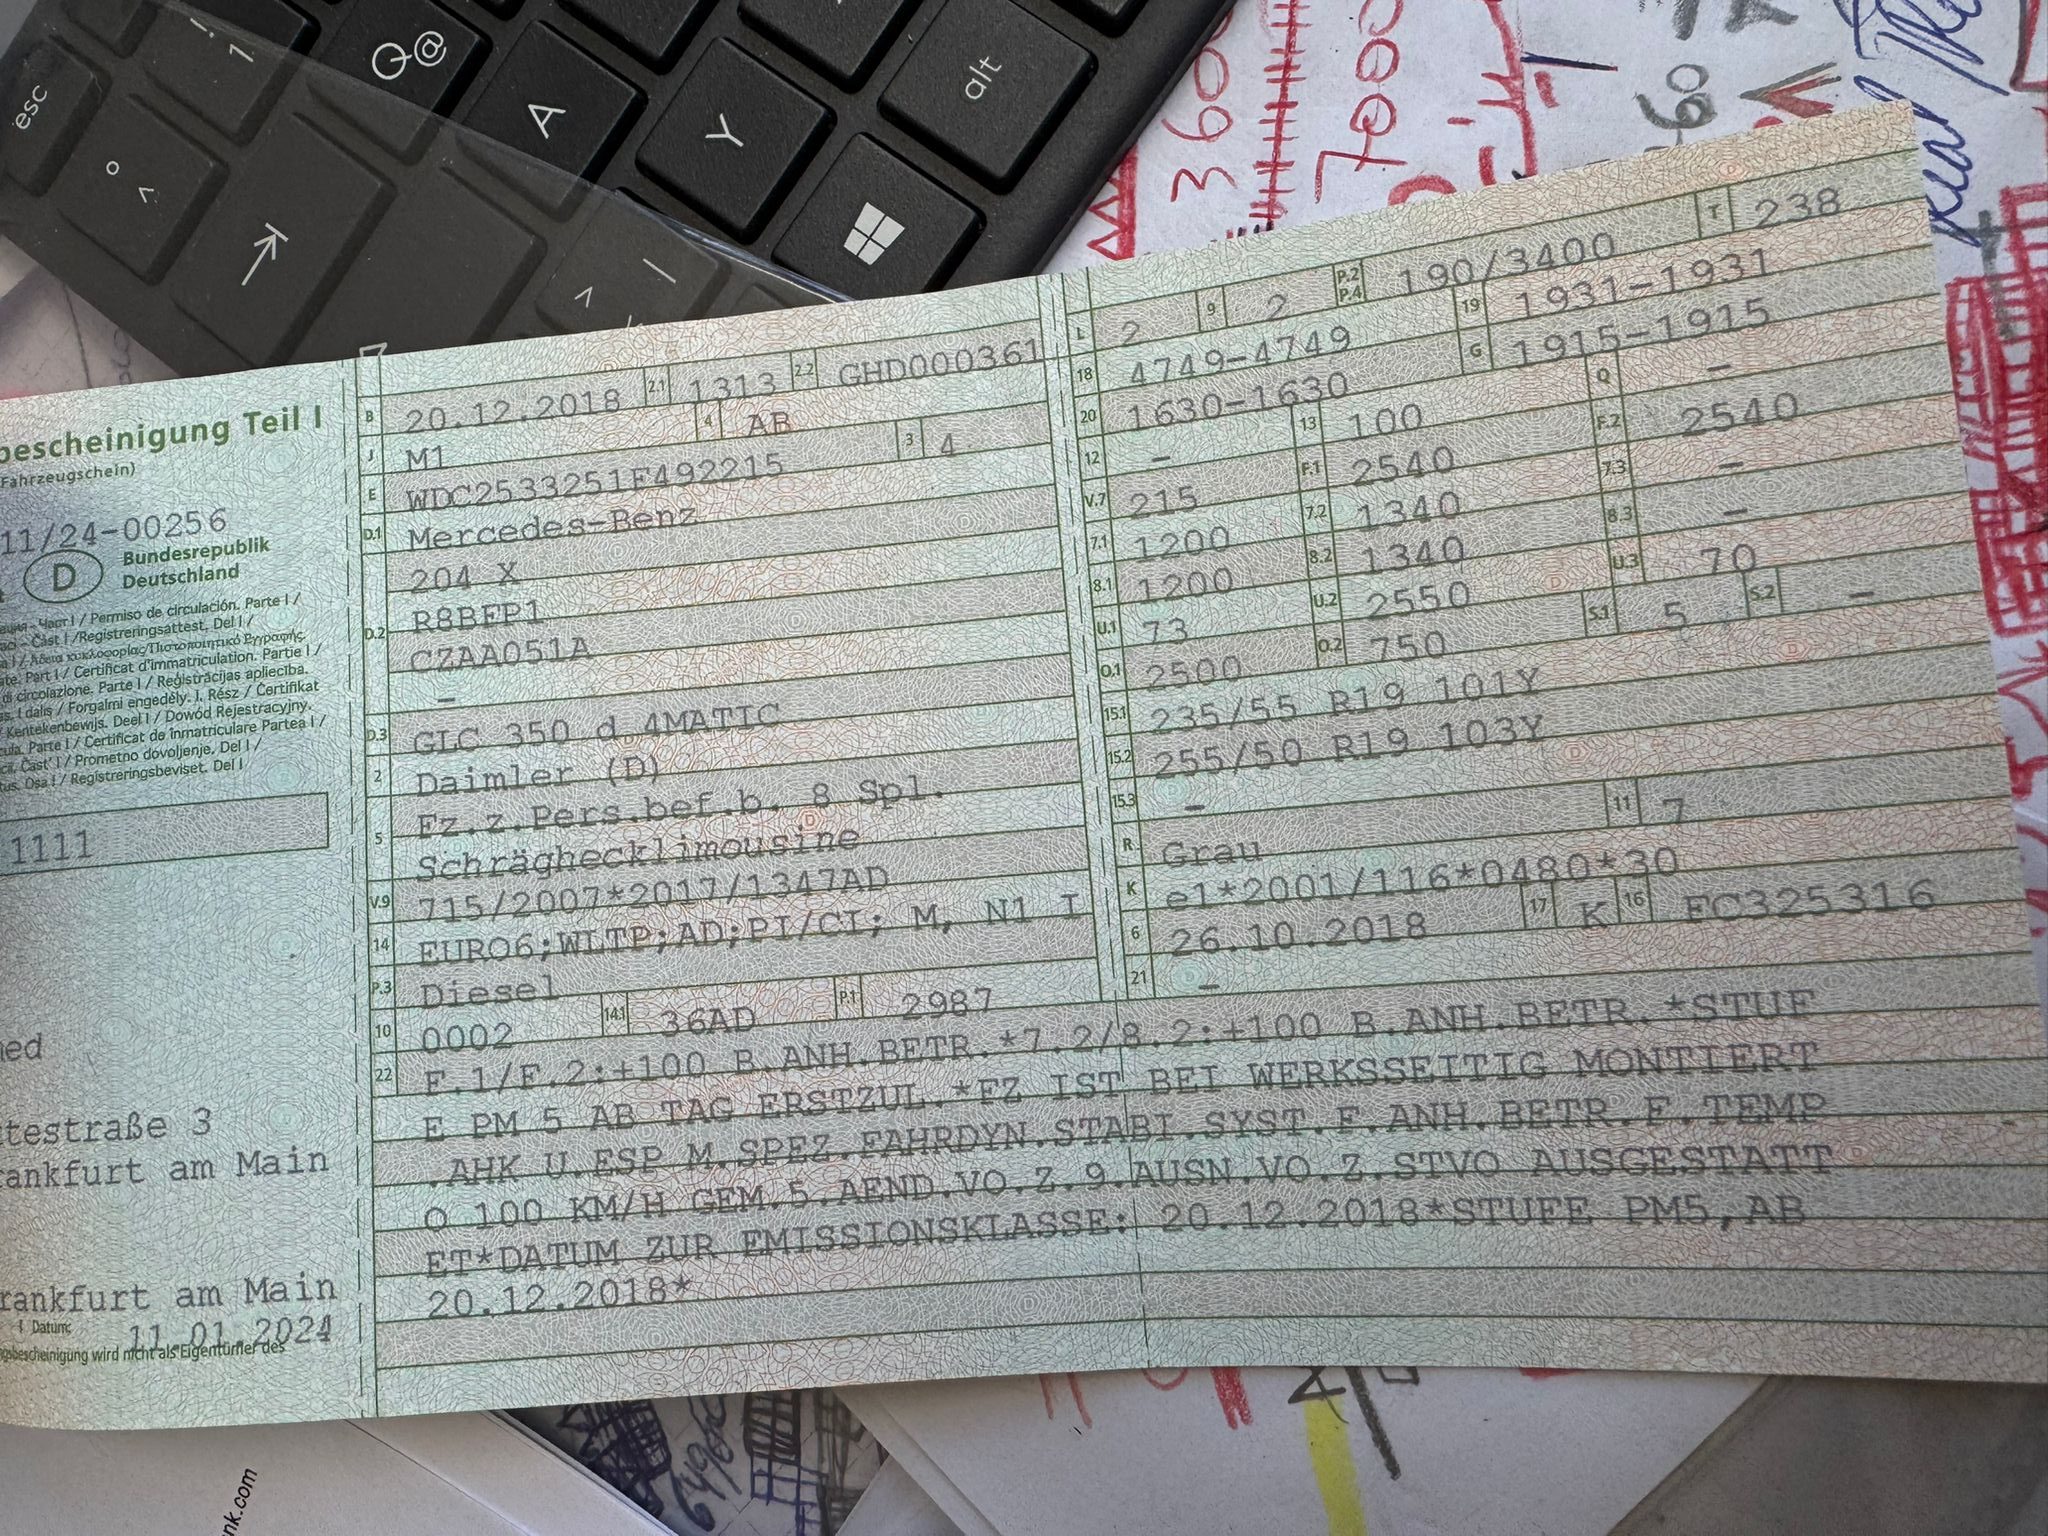 esc
!
1
Q@
A
Y
alt
°
^
3600
7000
60
bescheinigung Teil I
Fahrzeugschein)
11/24-00256
D
Bundesrepublik
Deutschland
Част I / Permiso de circulación. Parte I /
Část I / Registreringsattest. Del I /
Part I / Certificat d'immatriculation. Partie I /
di circolazione. Parte I / Reģistrācijas apliecība.
I dalis / Forgalmi engedély. I. Rész / Ċertifikat
Kentekenbewijs. Deel I / Dowód Rejestracyjny.
Parte I / Certificate de înmatriculare Partea I /
Časť I / Prometno dovoljenje. Del I /
Osa I / Registreringsbeviset. Del I
1111
testraße 3
ankfurt am Main
rankfurt am Main
Datum:
11.01.2024
gsbescheinigung wird nicht als Eigentümer des
B 20.12.2018 2.1 1313 2.2 GHD000361
J M1 4 AB
E WDC2533251F492215 3 4
D.1 Mercedes-Benz
204 X
D.2 R8BFP1
CZAA051A
–
D.3 GLC 350 d 4MATIC
2 Daimler (D)
5 Fz.z.Pers.bef.b. 8 Spl.
Schräghecklimousine
V.9 715/2007*2017/1347AD
14 EURO6;WLTP;AD;PI/CI; M, N1 I
P.3 Diesel
10 0002 14.1 36AD P.1 2987
L 2 9 2 P.2 P.4 190/3400 T 238
18 4749-4749 19 1931-1931
20 1630-1630 G 1915-1915
12 – 13 100 Q –
V.7 215 F.1 2540 F.2 2540
7.1 1200 7.2 1340 7.3 –
8.1 1200 8.2 1340 8.3 –
U.1 73 U.2 2550 U.3 70
O.1 2500 O.2 750 S.1 5 S.2 –
15.1 235/55 R19 101Y
15.2 255/50 R19 103Y
15.3 –
R Grau 11 7
K e1*2001/116*0480*30
6 26.10.2018 17 K 16 FC325316
21 –
22 F.1/F.2:+100 B.ANH.BETR.*7.2/8.2:+100 B.ANH.BETR.*STUF
E PM 5 AB TAG ERSTZUL.*FZ IST BEI WERKSSEITIG MONTIERT
.AHK U.ESP M.SPEZ.FAHRDYN.STABI.SYST.F.ANH.BETR.F.TEMP
O 100 KM/H GEM.5.AEND.VO.Z.9.AUSN.VO.Z.STVO AUSGESTATT
ET*DATUM ZUR EMISSIONSKLASSE: 20.12.2018*STUFE PM5,AB
20.12.2018*
nk.com